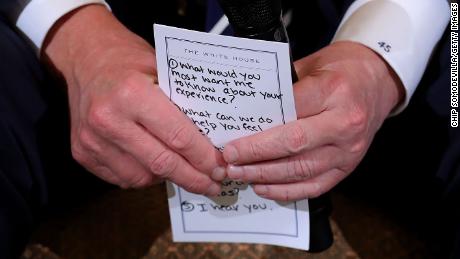 THE WHITE HOUSE
① What would you
most want me
to know about your
experience?
② What can we
do to help you feel
⑤ I hear you.
45
CHIP SOMODEVILLA/GETTY IMAGES